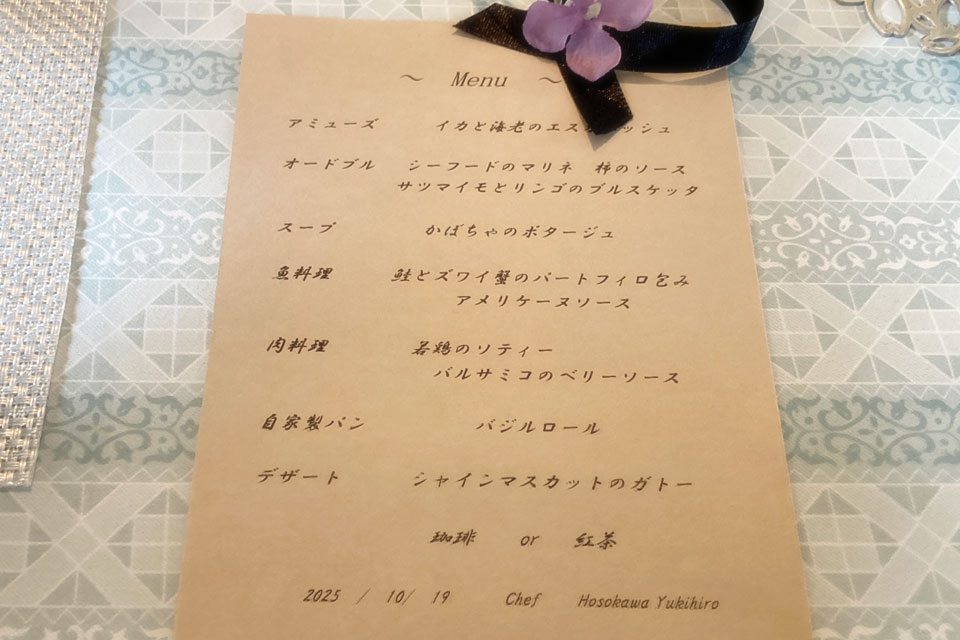 ～ Menu ～
アミューズ イカと海老のエスカベッシュ
オードブル シーフードのマリネ 柿のソース
サツマイモとリンゴのブルスケッタ
スープ かぼちゃのポタージュ
魚料理 鮭とズワイ蟹のパートフィロ包み
アメリケーヌソース
肉料理 若鶏のソティー
バルサミコのベリーソース
自家製パン バジルロール
デザート シャインマスカットのガトー
珈琲 or 紅茶
2025 / 10/ 19 Chef Hosokawa Yukihiro